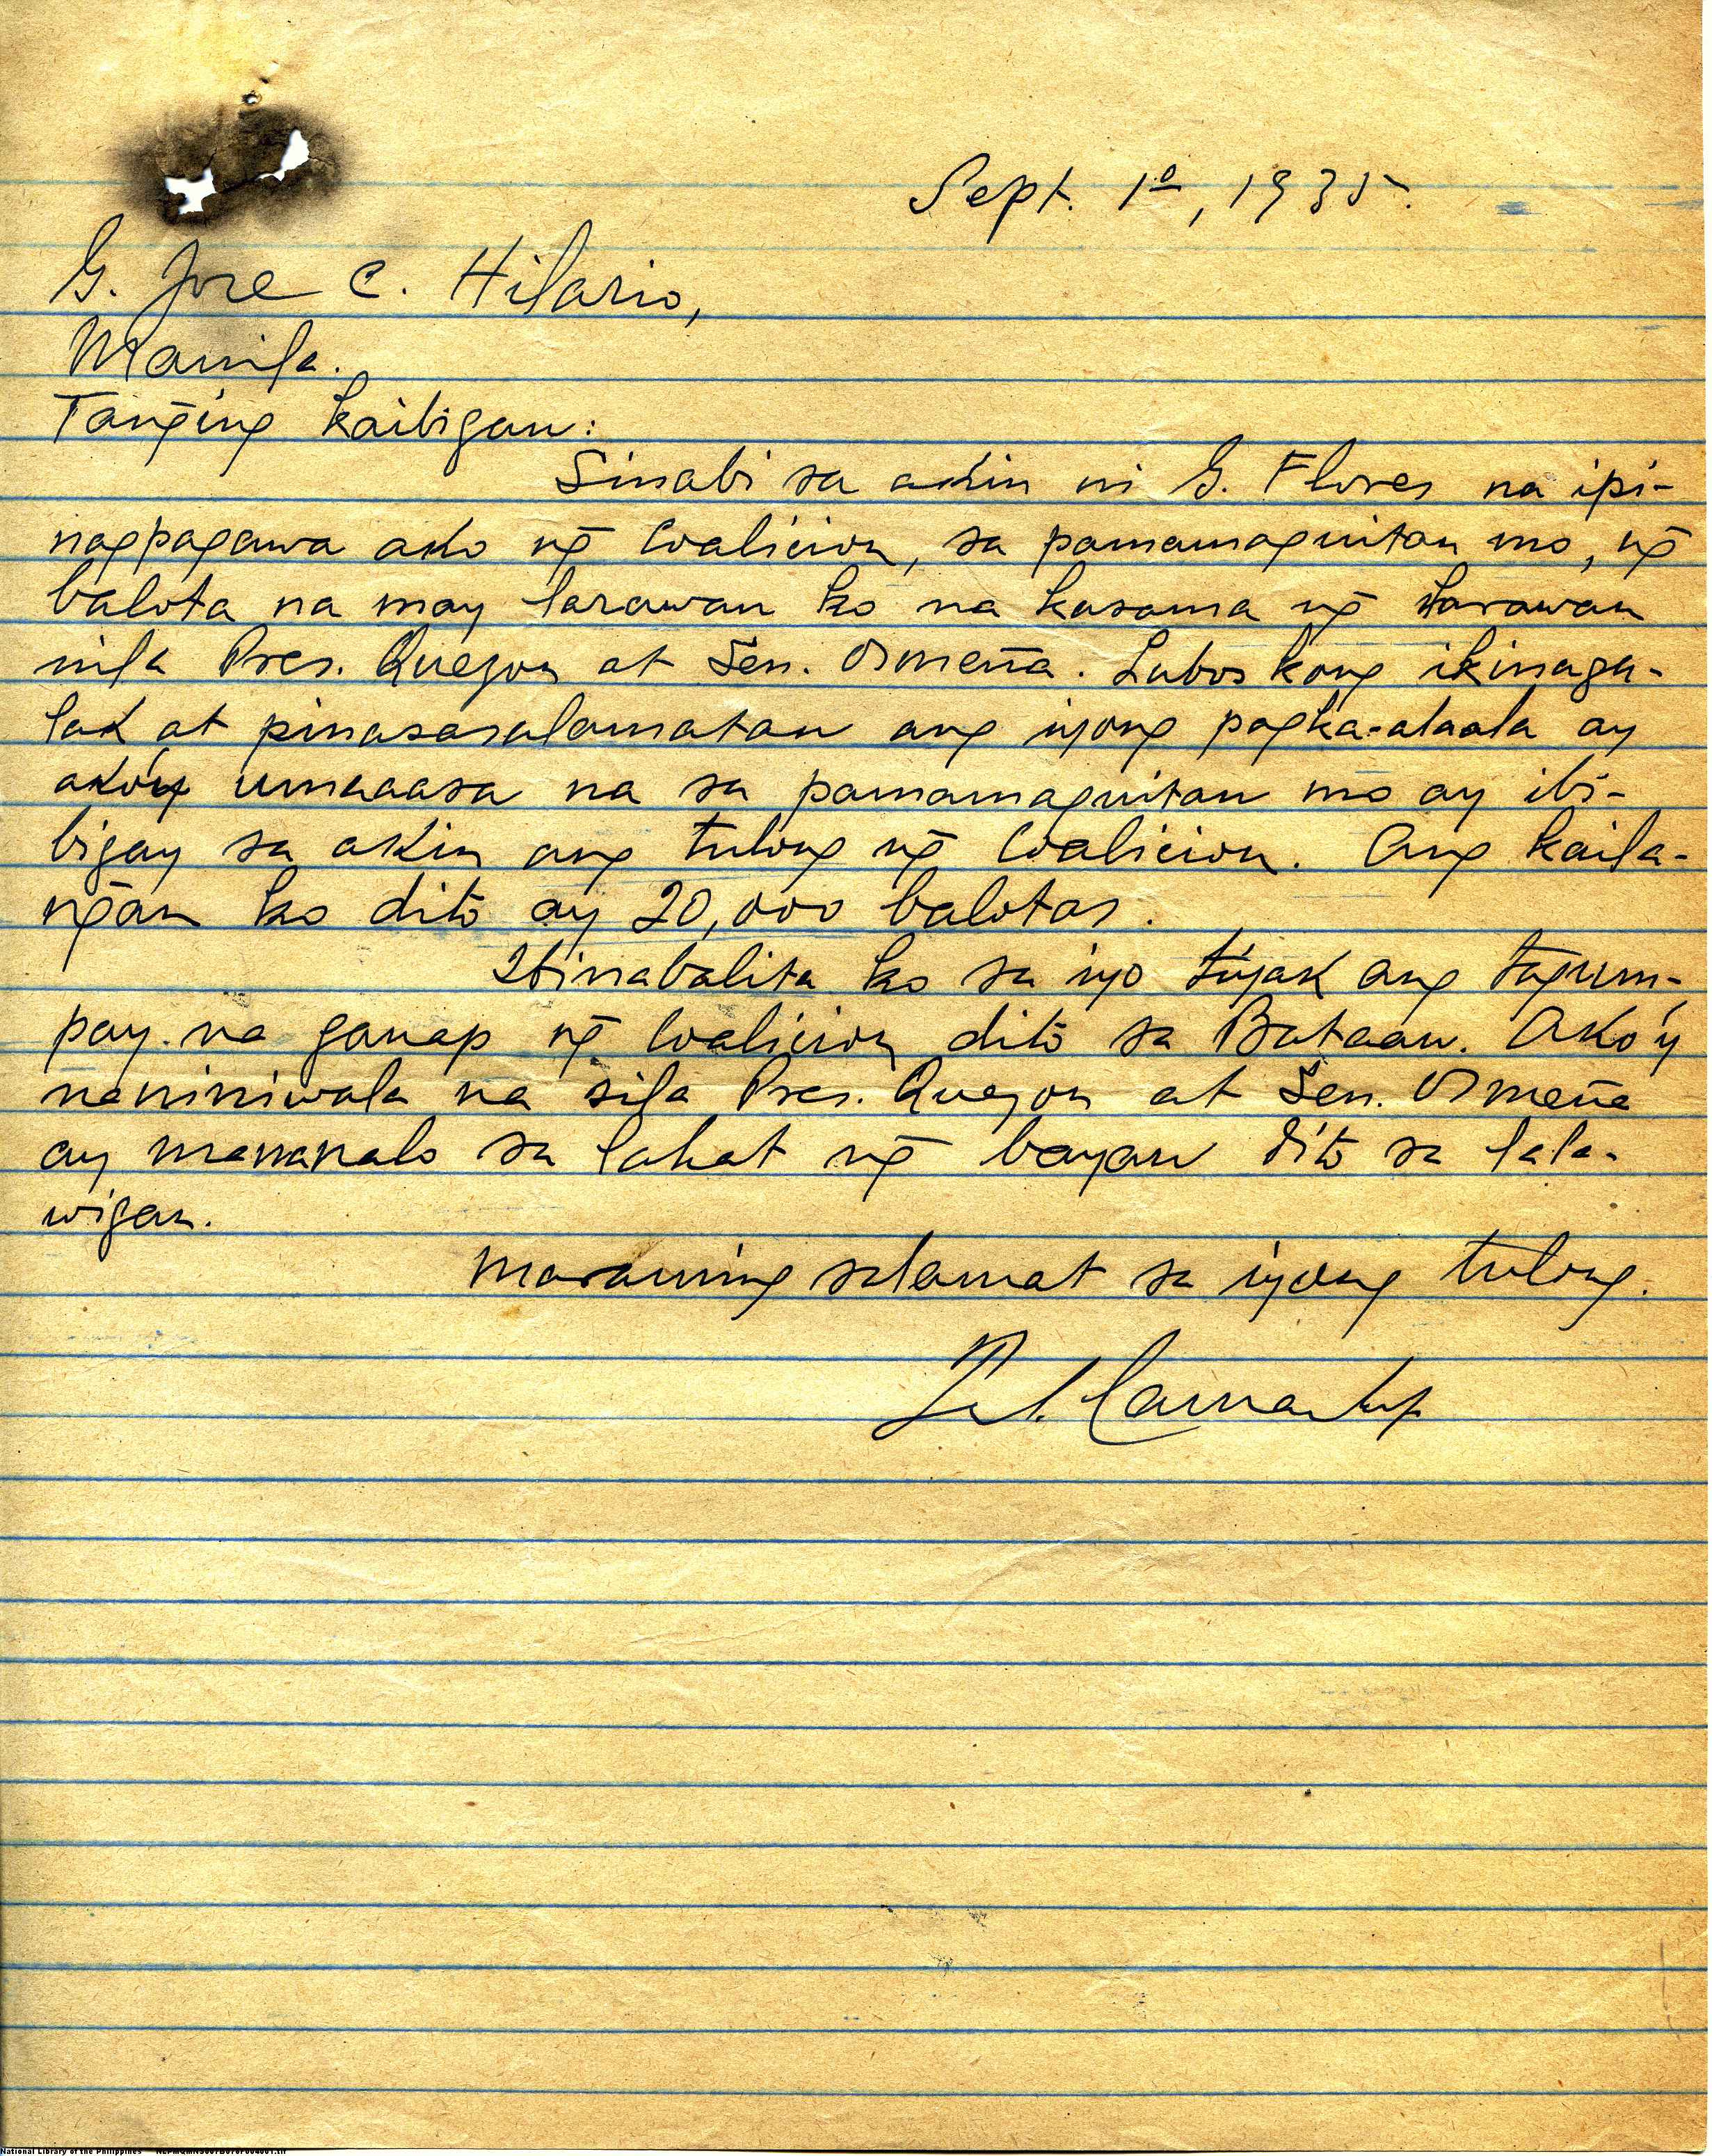 Sept. 1º, 1935.
G. Jose C. Hilario,
Manila.
Tanging kaibigan:
Sinabi sa akin ni G. Flores na ipi-
nagpagawa ako ng̃ Coalicion, sa pamamaguitan mo, ng̃
balota na may larawan ko na kasama ng̃ larawan
nila Pres. Quezon at Sen. Osmeña. Lubos kong ikinaga-
lak at pinasasalamatan ang iyong pagka-alaala ay
ako'y umaaasa na sa pamamaguitan mo ay ibi-
bigay sa akin ang tulong ng̃ Coalicion. Ang kaila-
ng̃an ko dito ay 20,000 balotas.
Ibinabalita ko sa iyo tiyak ang tagum-
pay na ganap ng̃ Coalicion dito sa Bataan. Ako'y
naniniwala na sila Pres. Quezon at Sen. Osmeña
ay mananalo sa lahat ng̃ bayan dito sa lala-
wigan.
Maraming salamat sa iyong tulong.
National Library of the Philippines